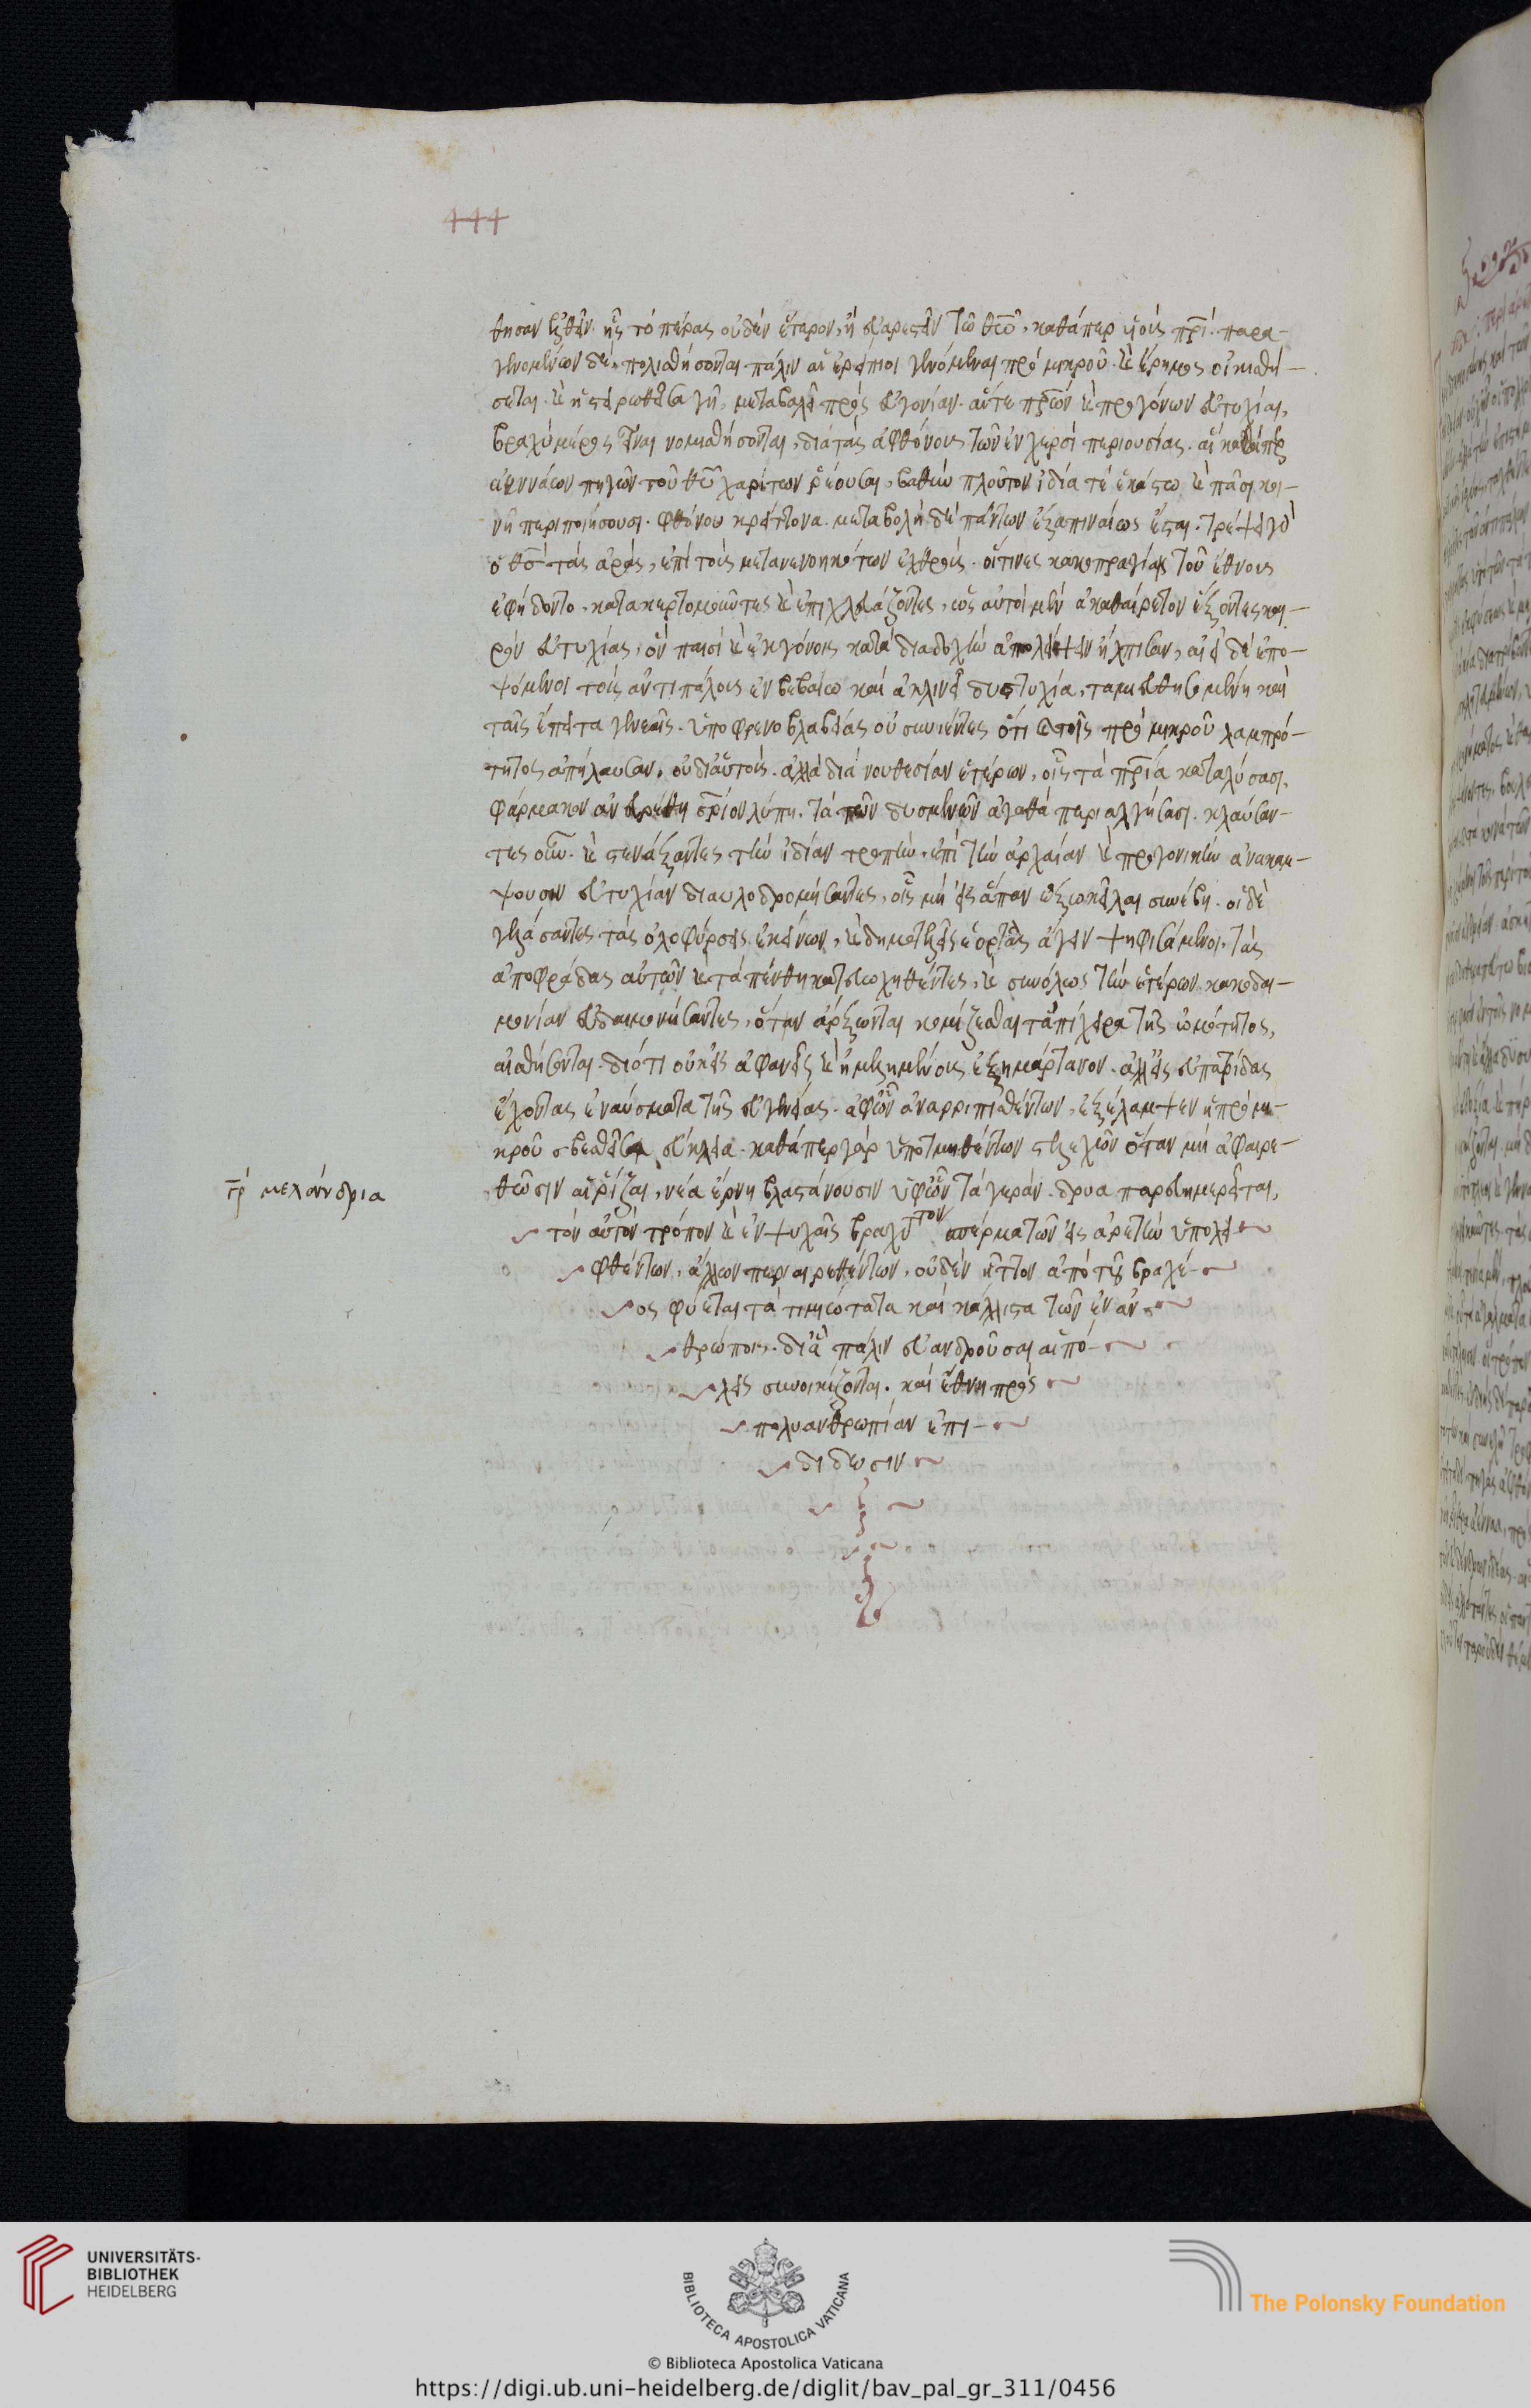 444
θησαν ἐλθεῖν. ἧς τὸ πέρας οὐδὲν ἕτερον, ἢ εὐαρεστεῖν τῶ θεῶ, καθάπερ υἱοὺς πρί. παρα-
γενομένων δὲ, πολισθήσονται πάλιν αἱ ἐρείπιοι γενόμεναι πρὸ μικροῦ. καὶ ἔρημος οἰκισθή-
σεται. καὶ ἡ στειρωθεῖσα γῆ, μεταβαλεῖ πρὸς εὐγονίαν. αἵτε πρων καὶ προγόνων εὐτυχίαι,
βραχὺ μέρος εἶναι νομισθήσονται, διὰ τὰς ἀφθόνους τῶν ἐν χερσὶ περιουσίας. αἳ καθάπερ
ἀεννάων πηγῶν τοῦ θυ χαρίτων ῥέουσαι, βαθὺν πλοῦτον ἰδία τὲ ἑκάστω καὶ πᾶσι κοι-
νῆ περιποιήσουσι. φθόνου κρείττονα. μεταβολὴ δὲ πάντων ἐξαπιναίως ἔσται. τρέψει γὰρ
ὁ θσ τὰς ἀρὰς, ἐπὶ τοὺς μετανενοηκότων ἐχθρούς. οἵτινες κακοπραγίαις τοῦ ἔθνους
ἐφήδοντο. κατακερτομοῦντες καὶ ἐπιχλευάζοντες, ὡς αὐτοὶ μὲν ἀκαθαίρετον ἕξοντες και-
ρὸν εὐτυχίας, ὃν παισὶ καὶ ἐκγόνοις κατὰ διαδοχὴν ἀπολείψειν ἤλπισαν, ἀεὶ δὲ ἐπο-
ψόμενοι τοὺς ἀντιπάλους ἐν βεβαίω καὶ ἀκλινεῖ δυστυχία, ταμιευθησομένη καὶ
ταῖς ἔπειτα γενεαῖς. ὑπὸ φρενοβλαβείας οὐ συνιέντες ὅτι καὶ τῆς πρὸ μικροῦ λαμπρό-
τητος ἀπήλαυσαν, οὐ δι' αὑτούς. ἀλλὰ διὰ νουθεσίαν ἑτέρων, οἷς τὰ πρια καταλύσασι,
φάρμακον ἀνευρέθη σριον λύπη, τὰ τῶν δυσμενῶν ἀγαθὰ περιαλγήσασι. κλαύσαν-
τες οὖν. καὶ στενάξαντες τὴν ἰδίαν τροπὴν. ἐπὶ τὴν ἀρχαίαν καὶ προγονικὴν ἀνακάμ-
ψουσιν εὐτυχίαν διαυλοδρομήσαντες, οἷς μὴ εἰς ἅπαν ἐξωκεῖλαι συνέβη. οἱ δὲ
γελάσαντες τὰς ὀλοφύρσεις ἐκείνων, καὶ δημοτελεῖς ἑορτὰς ἄγειν ψηφισάμενοι, τὰς
ἀποφράδας αὐτῶν καὶ τὰ πένθη κατευωχηθέντες, καὶ συνόλως τὴν ἑτέρων κακοδαι-
μονίαν εὐδαιμονήσαντες, ὅταν ἄρξωνται κομίζεσθαι τἀπίχειρα τῆς ὠμότητος,
αἰσθήσονται. διότι οὐκ εἰς ἀφανεῖς καὶ ἠμελημένους ἐξημάρτανον. ἀλλ' εἰς εὐπατρίδας
ἔχοντας ἐναύσματα τῆς εὐγενείας. ἀφ' ὧν ἀναρριπισθέντων, ἐξέλαμψεν ἡ πρὸ μι-
κροῦ σβεσθεῖσα εὔκλεια. καθάπερ γὰρ ὑποτμηθέντων στελεχῶν ὅταν μὴ ἀφαιρε-
θῶσιν αἱ ῥίζαι, νέα ἔρνη βλαστάνουσιν ὑφ' ὧν τὰ γεράνδρυα παρευημερεῖται,
γρ μελάνδρια
τὸν αὐτὸν τρόπον καὶ ἐν ψυχαῖς βραχύτατον σπερμάτων εἰς ἀρετὴν ὑπολει-
φθέντων, ἄλλων περιαιρεθέντων, οὐδὲν ἧττον ἀπὸ τῆς βραχέ-
ος φύεται τὰ τιμιώτατα καὶ κάλλιστα τῶν ἐν ἀν-
θρώποις. δι' ἃ πάλιν εὐανδροῦσαι αἱ πό-
λεις συνοικίζονται. καὶ ἔθνη πρὸς
πολυανθρωπίαν ἐπι-
διδωσιν
UNIVERSITÄTS-
BIBLIOTHEK
HEIDELBERG
BIBLIOTECA APOSTOLICA VATICANA
The Polonsky Foundation
© Biblioteca Apostolica Vaticana
https://digi.ub.uni-heidelberg.de/diglit/bav_pal_gr_311/0456